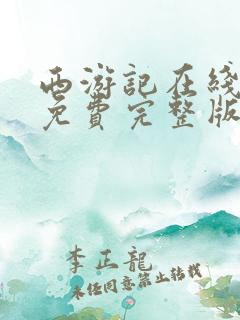 西游記在綫
免費完整版
李正龍
未经同意禁止转载